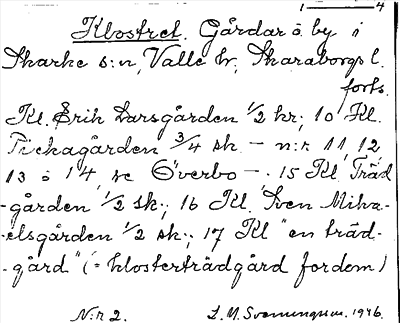 1 — 4
Klostret. Gårdar o. by i
Skarke s:n, Valle hr; Skaraborgs l.
forts.
Kl. Erik Larsgården 1/2 kr; 10 Kl.
Fickagården 3/4 sk. – n:r 11, 12,
13 o 14, se Överbo –. 15 Kl Träd
-gården 1/2 sk.; 16 Kl. Sven Mika-
elsgården 1/2 sk.; 17 Kl "en träd-
-gård" (= klosterträdgård fordom)
N:r 2. 1946.